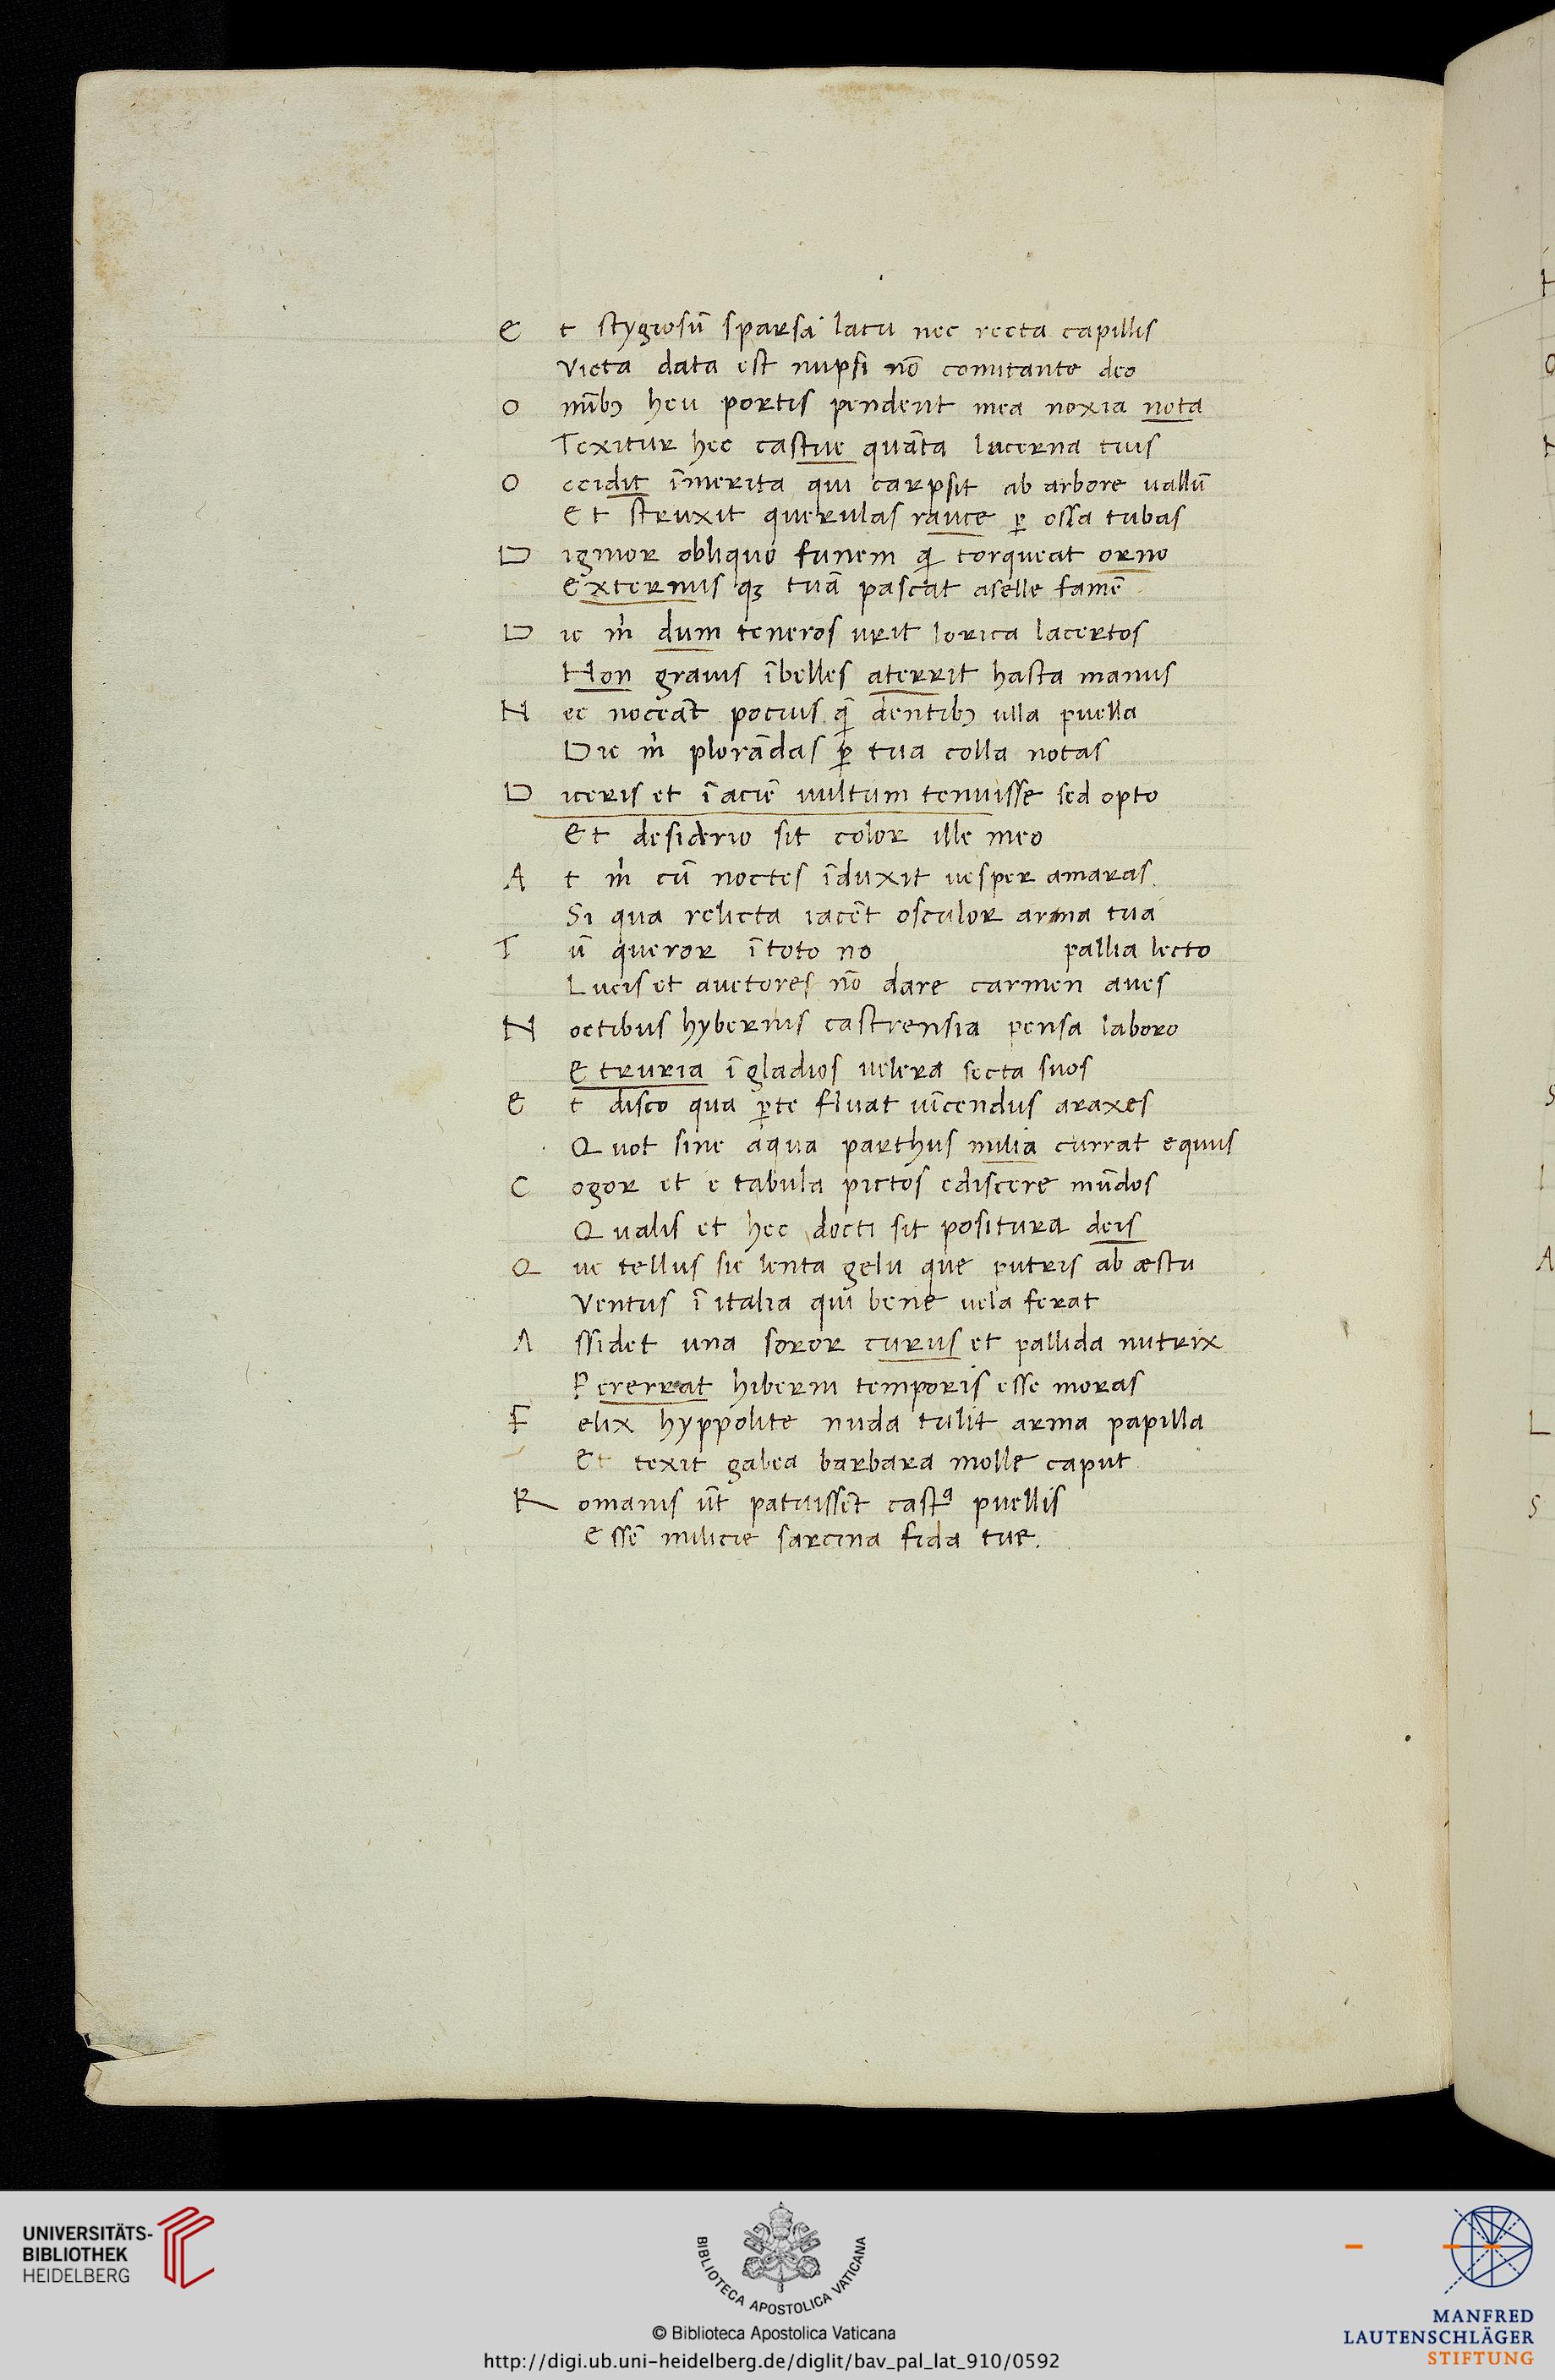 E t stygiosũ sparsa lacu nec recta capillis
Victa data est nupsi nõ comitante deo
O mĩbꝫ heu portis pendent mea noxia nota
Texitur hec castue quãta lucerna tuis
O ccidit ĩmerita qui carpsit ab arbore uallũ
Et struxit querulas rauce ꝑ ossa tubas
D ignior obliquo funem q̃ torqueat orno
Externus qꝫ tuã pascat aselle famẽ
D ic m̃ dum teneros urit lorica lacertos
Non grauis ĩbelles aterrit hasta manus
N ec noceãt potius q̃ dentibꝫ ulla puella
Dic m̃ plorãdas ꝑ tua colla notas
D iceris et ĩ aciẽ uultum tenuisse sed opto
Et desiderio sit color ille meo
A t m̃ cũ noctes ĩduxit uesper amaras.
Si qua relicta iacẽt osculor arma tua
T ũ queror ĩ toto no pallia lecto
Lucis et auctores nõ dare carmen aues
N octibus hybernis castrensia pensa laboro
Etruria ĩ gladios uelera secta suos
E t disco qua ꝑte fluat uĩcendus araxes
Quot sine aqua parthus milia currat equus
C ogor et e tabula pictos ediscere mũdos
Qualis et hec docti sit positura deis
Q ue tellus sic lenta gelu que putris ab æstu
Ventus ĩ italia qui bene uela ferat
A ssidet una soror curus et pallida nutrix
Pererrat hiberni temporis esse moras
F elix hyppolite nuda tulit arma papilla
Et texit galea barbara molle caput
R omanis ut̃ patuissẽt castꝰ puellis
Essẽ milicie sarcina fida tue.
UNIVERSITÄTS-
BIBLIOTHEK
HEIDELBERG
BIBLIOTECA APOSTOLICA VATICANA
© Biblioteca Apostolica Vaticana
http://digi.ub.uni-heidelberg.de/diglit/bav_pal_lat_910/0592
MANFRED
LAUTENSCHLÄGER
STIFTUNG